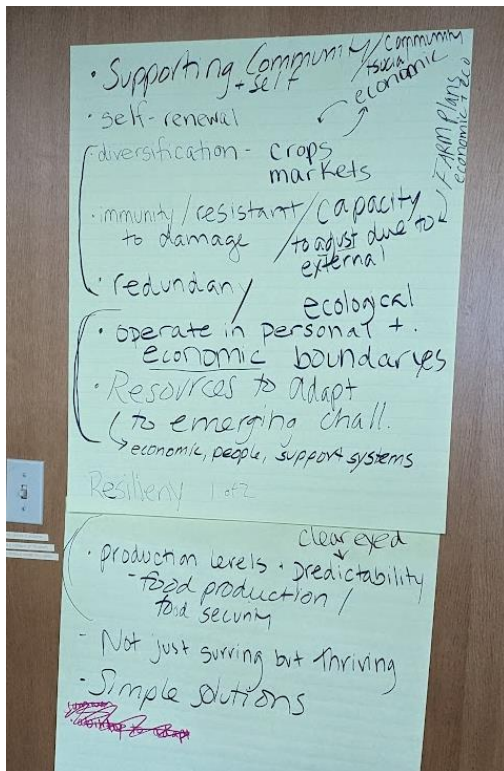 • Supporting Community / community
+ self
+ social
economic
• self-renewal
• diversification - crops
markets
/ FARM Plans
economic + eco
• immunity / resistant / capacity
to damage / to adjust due to
external
• redundany /
ecological
• operate in personal +
economic boundaries
• Resources to adapt
to emerging chall.
→ economic, people, support systems
Resilieny 1 of 2
clear eyed
• production levels • predictability
- food production /
food security
- Not just surving but thriving
- Simple solutions